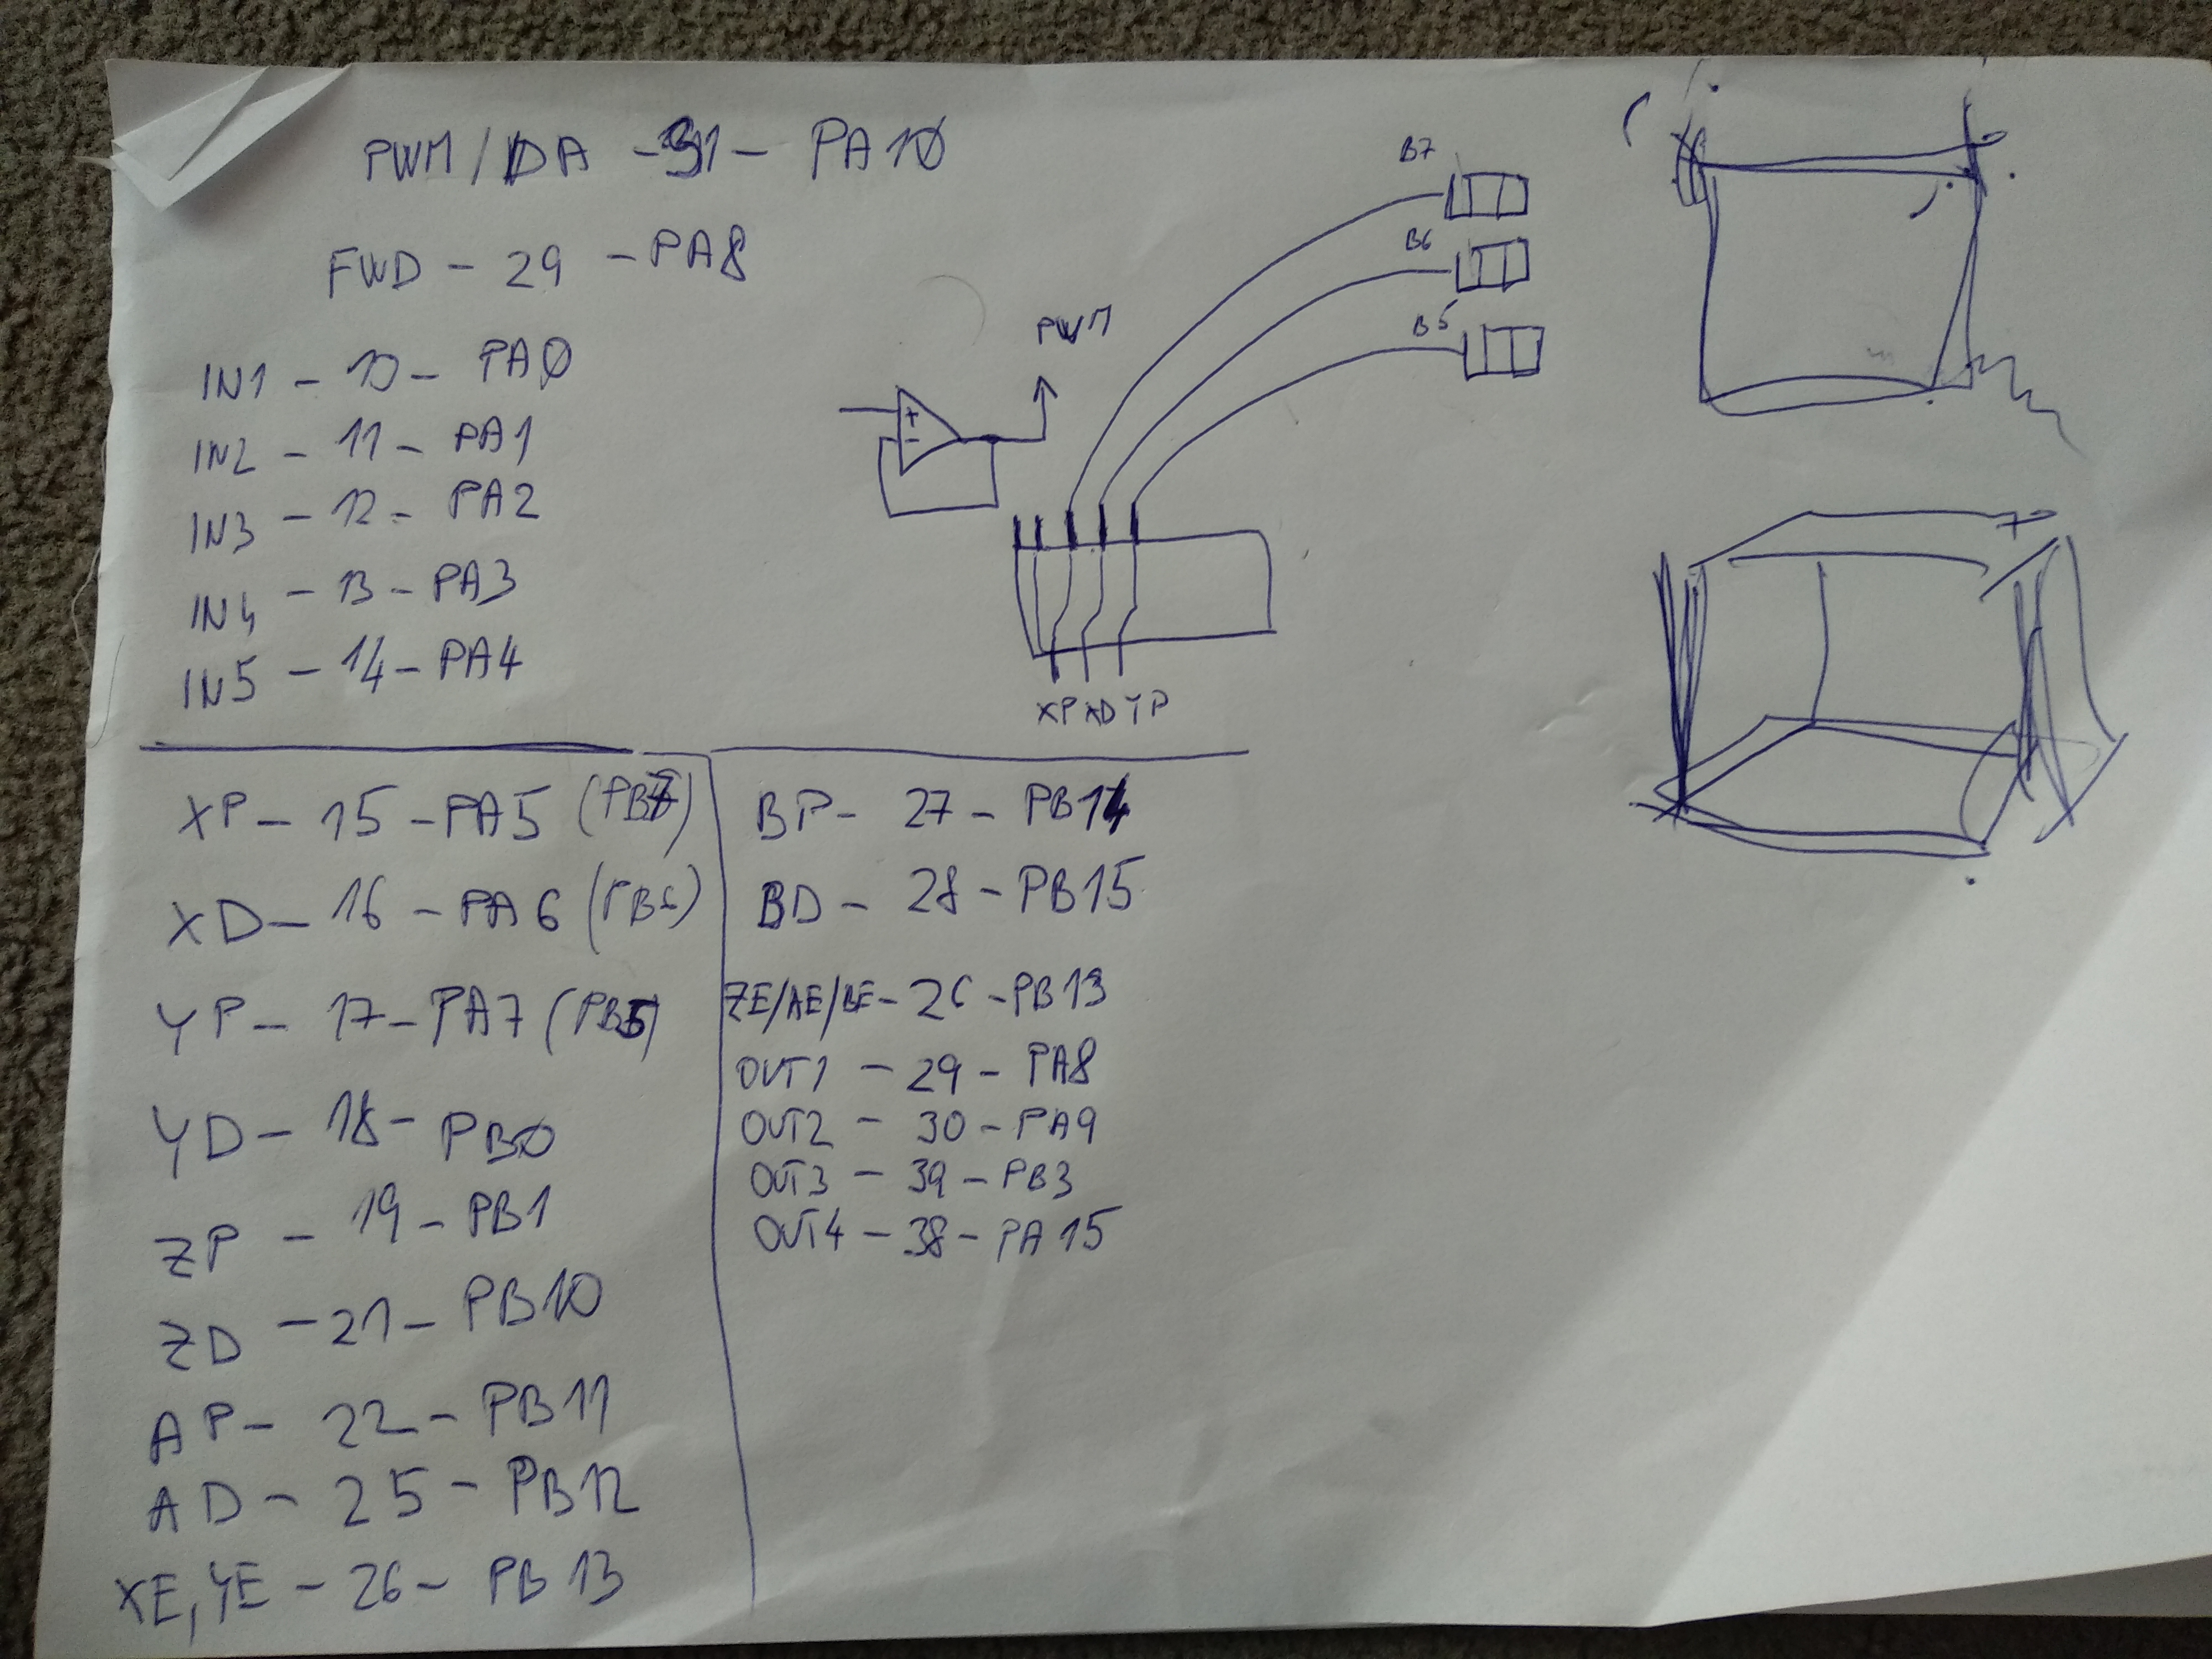 PWM/DA - 31 - PA10
FWD - 29 - PA8
IN1 - 10 - PA0
IN2 - 11 - PA1
IN3 - 12 - PA2
IN4 - 13 - PA3
IN5 - 14 - PA4
PWM
+
-
B7
B6
B5
XP XD YP
XP - 15 - PA5 (PB7)
XD - 16 - PA6 (PB6)
YP - 17 - PA7 (PB5)
YD - 18 - PB0
ZP - 19 - PB1
ZD - 21 - PB10
AP - 22 - PB11
AD - 25 - PB12
XE, YE - 26 - PB13
BP - 27 - PB14
BD - 28 - PB15
ZE/AE/BE - 26 - PB13
OUT1 - 29 - PA8
OUT2 - 30 - PA9
OUT3 - 39 - PB3
OUT4 - 38 - PA15